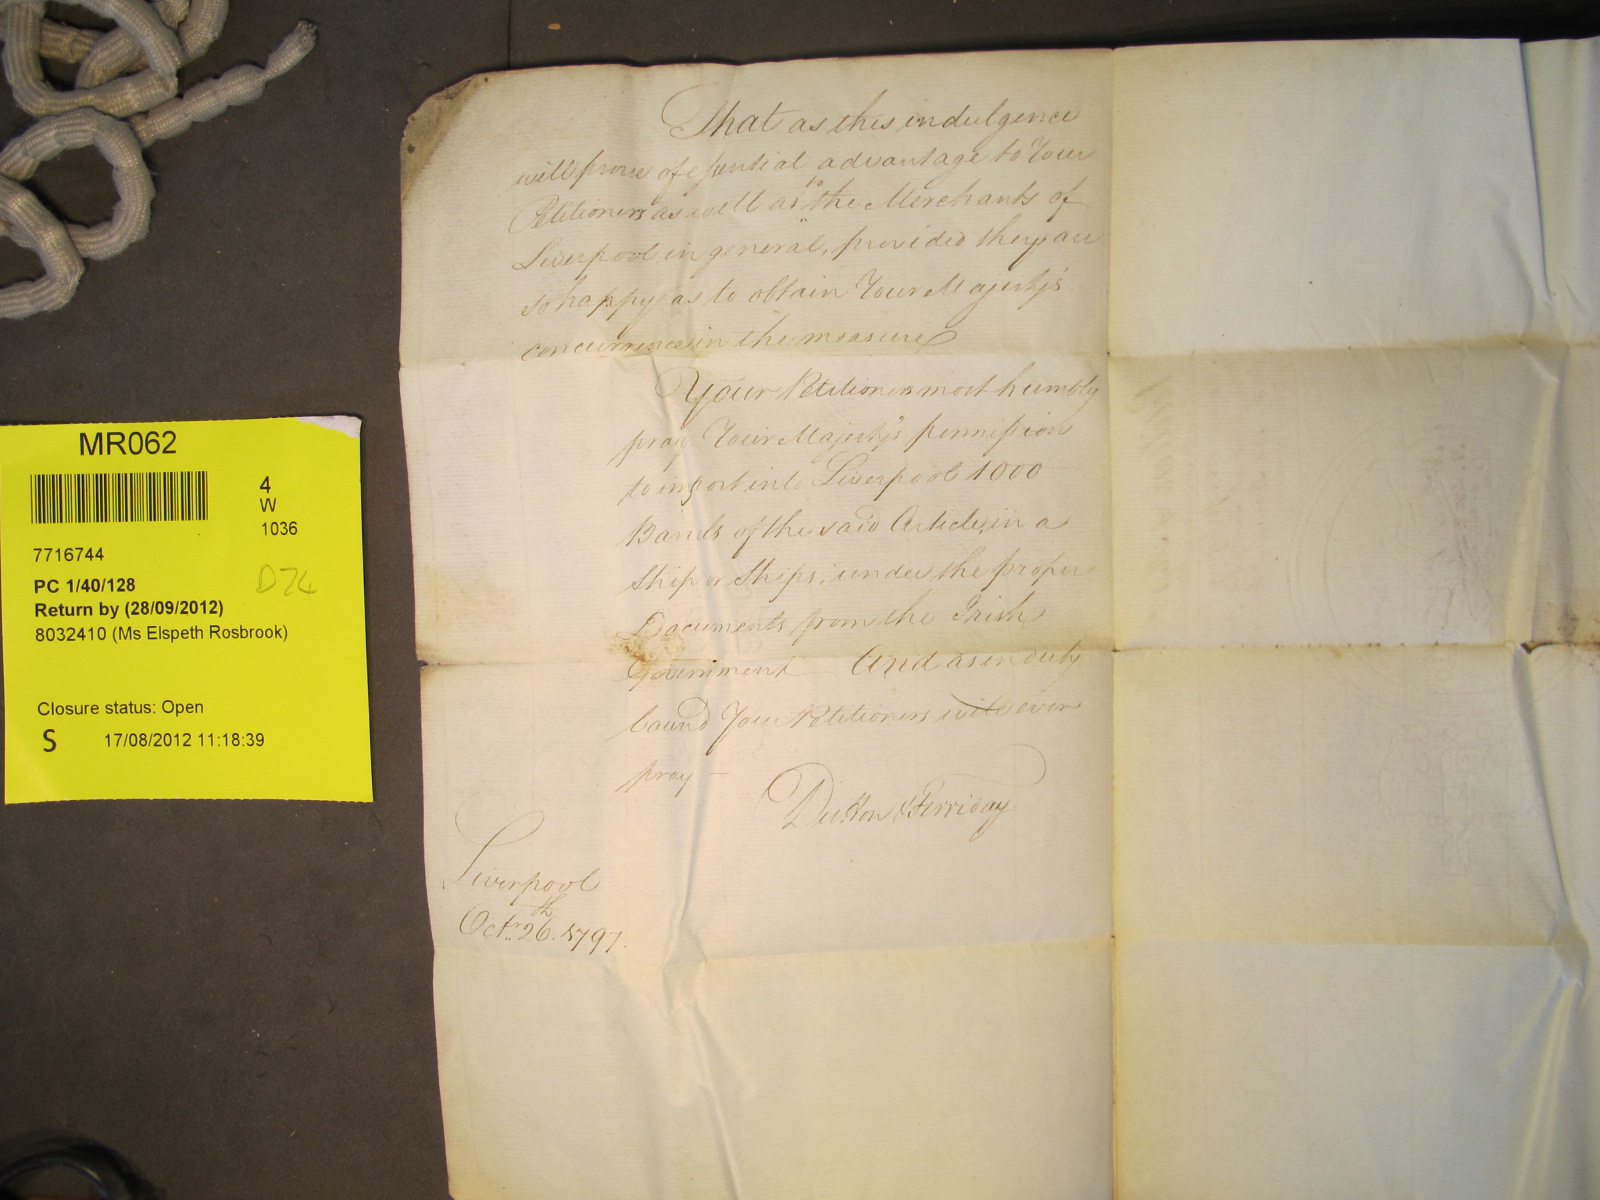 That as this indulgence
will prove of essential advantage to Your
Petitioners as well as to the Merchants of
Liverpool in general, provided they are
so happy as to obtain Your Majesty's
concurrence in the measure
Your Petitioners most humbly
pray Your Majesty's permission
to import into Liverpool 1000
Barrels of the said Article, in a
Ship or Ships, under the proper
Documents from the Irish
Government And as in duty
bound Your Petitioners will ever
pray —
Dutton & Ferriday
Liverpool
Octr. 26th. 1797.
MR062
4
W
1036
7716744
PC 1/40/128
D74
Return by (28/09/2012)
8032410 (Ms Elspeth Rosbrook)
Closure status: Open
S 17/08/2012 11:18:39